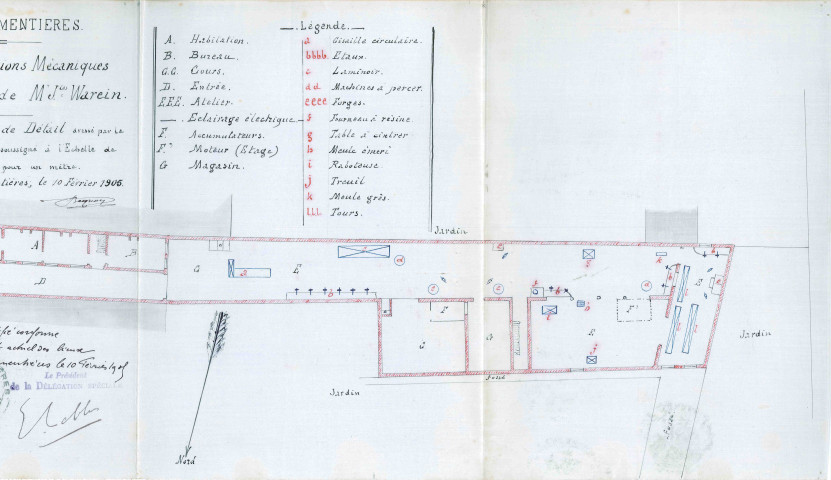 MENTIERES.
ions Mécaniques
de Mr Jles Warein.
de Détail dressé par le
soussigné à l'Echelle de
pour un mètre.
tières, le 10 Février 1906.
Légende.
A. Habitation.
B. Bureau.
C.C. Cours.
D. Entrée.
E.E.E. Atelier.
Eclairage électrique
F. Accumulateurs.
F' Moteur (Etage)
G Magasin.
a Cisaille circulaire.
bbbb Etaux.
c Laminoir.
dd Machines à percer.
eeee Forges.
f Fourneau à résine.
g Table à cintrer
h Meule émeri
i Raboteuse
j Treuil
k Meule grès.
l.l.l. Tours.
Jardin
A
B
D
G
E
E
E
F
F'
Jardin
Jardin
Fossé
Fossé
Nord
conforme
actuel des lieux
mentières le 10 Février
Le Président
de la DÉLÉGATION SPÉCIALE